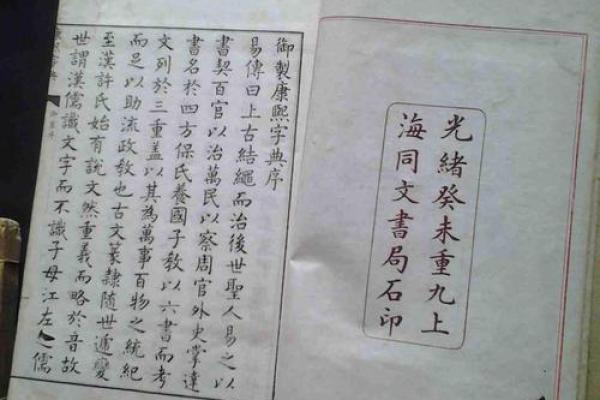 光緒癸未重九上
海同文書局石印
御製康熙字典序
易傳曰上古結繩而治後世聖人易之以
書契百官以治萬民以察周官外史掌達
書名於四方保氏養國子教以六書而考
文列於三重蓋以其為萬事百物之統紀
而足以助流政教也古文篆隸隨世遞變
至漢許氏始有說文然重義而略於音故
世謂漢儒識文字而不識子母江左之儒